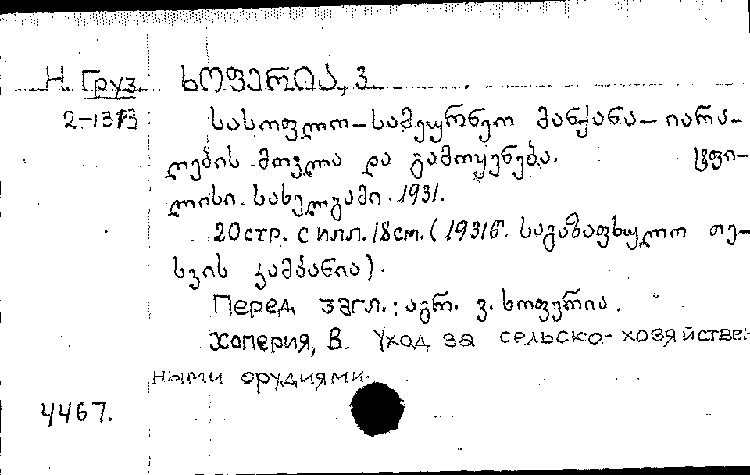 Н. Груз ხოფერია, ვ.
2-1373 სასოფლო-სამეურნეო მანქანა-იარა-
ღების მოვლა და გამოყენება. ტფი-
ლისი. სახელგამი. 1931.
20 стр. с илл. 18 см. (1931 წ. საგაზაფხულო თე-
სვის კამპანია).
Перед загл.: აგრ. ვ. ხოფერია.
Хоперия, В. Уход за сельско-хозяйствен
ными орудиями.
4467.